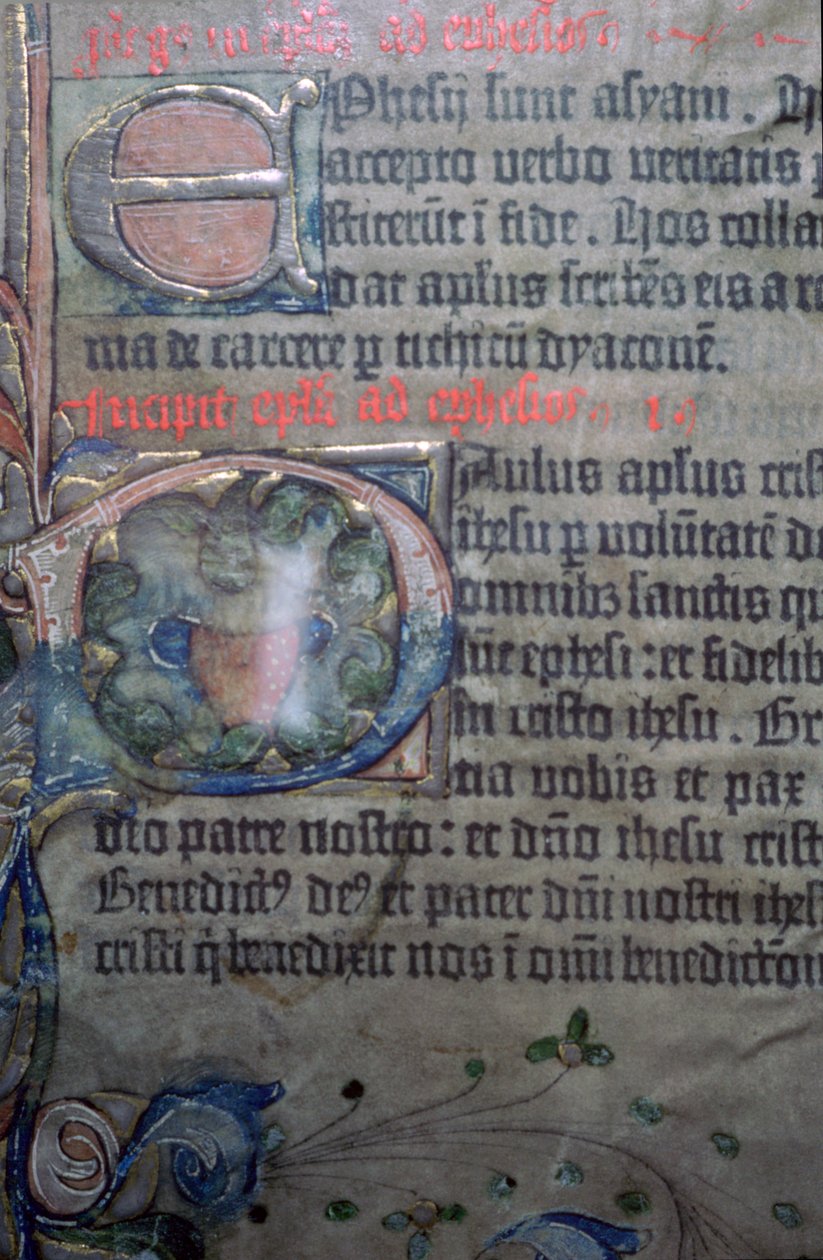 in ep̄ła ad ephesios
EPhesij sunt asyani . H
accepto verbo veritatis p
stiterūt ī fide . Hos collau
dat apłus scribēs eis a ro
ma de carcere ꝑ tichicū dyaconē.
Incipit ep̄ła ad ephesios . 1 .
PAulus apłus crist
ihesu ꝑ volūtatē de
omnibꝫ sanctis qu
sūt ephesi : et fidelib
in cristo ihesu . Gr
tia vobis et pax
deo patre nostro : et dn̄o ihesu crist
Benedictꝰ deꝰ et pater dn̄i nostri ihes
cristi q̇ benedixit nos ī om̄i benedictōn